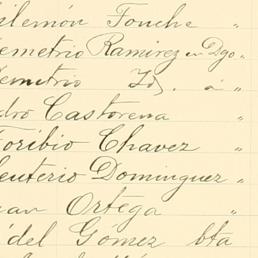 ilemón Fouche "
emetrio Ramirez en Dgo.
emetrio Id. á "
dro Castorena "
oribio Chavez "
euterio Dominguez "
uan Ortega "
idel Gomez bta